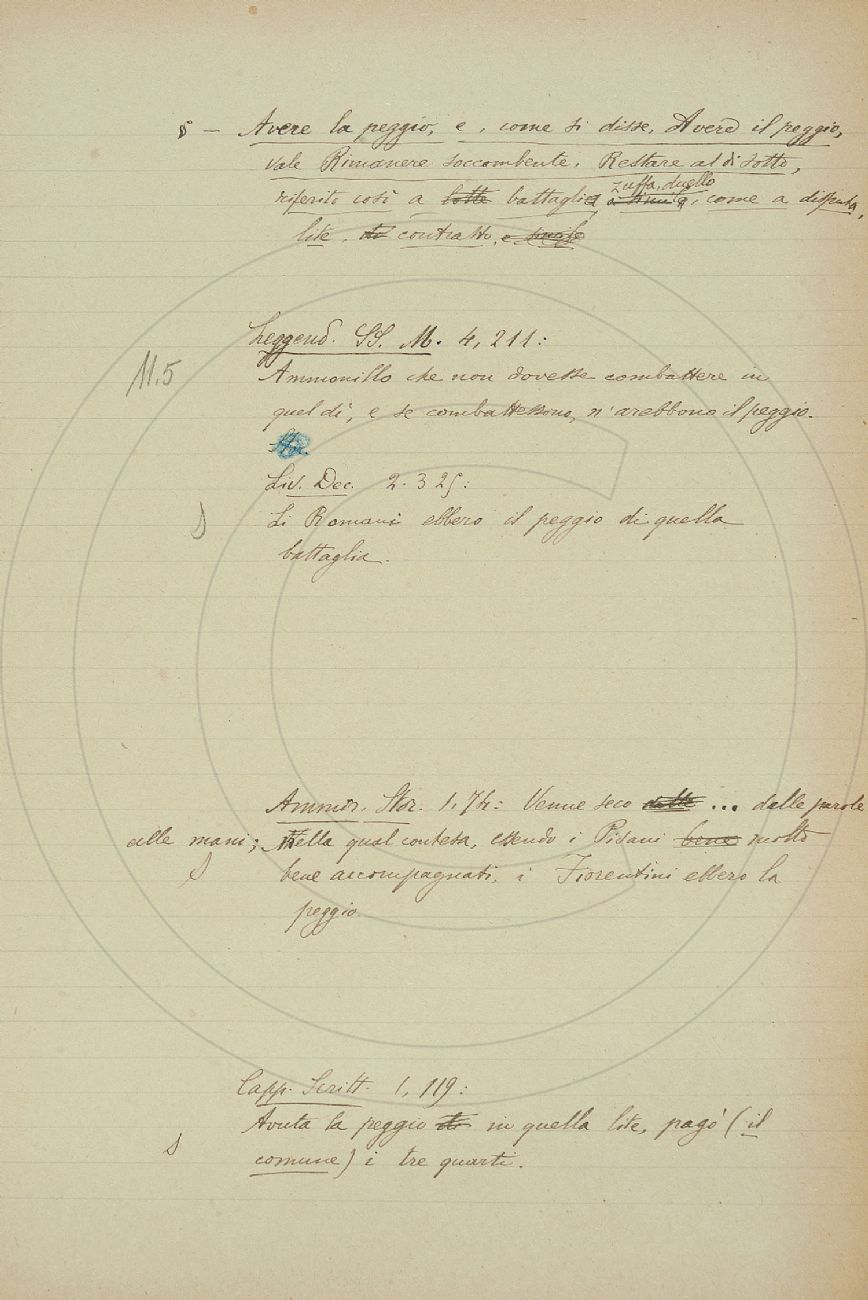 § — Avere la peggio, e, come si disse, Avere il peggio,
vale Rimanere soccombente, Restare al di sotto,
zuffa, duello
riferito così a lotte battaglia, come a disputa,
lite, contratto,
Leggend. SS. M. 4, 211:
11.5
Ammonillo che non dovesse combattere in
quel dì, e se combattessono, n'arebbono il peggio.
Liv. Dec. 2. 325:
Li Romani ebbero il peggio di quella
battaglia.
Ammir. Stor. 1, 74: Venne seco ... dalle parole
alle mani; nella qual contesa, essendo i Pisani bene molto
bene accompagnati, i Fiorentini ebbero la
peggio.
Capp. Scritt. 1, 119:
Avuta la peggio in quella lite, pagò (il
comune) i tre quarti.